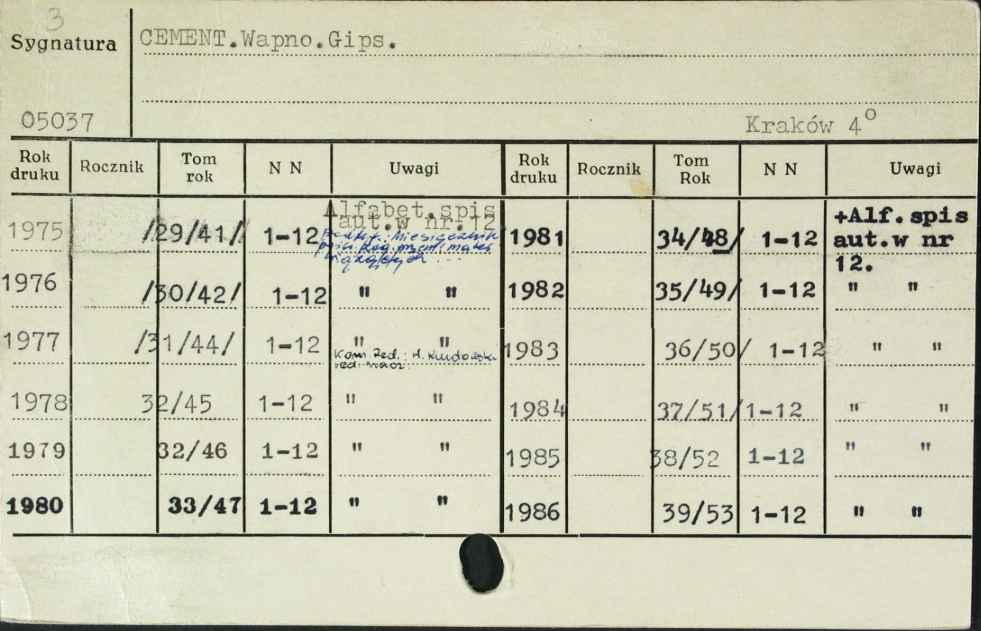 3
Sygnatura
CEMENT.Wapno.Gips.
05037
Kraków 4°
Rok druku Rocznik Tom rok N N Uwagi Rok druku Rocznik Tom Rok N N Uwagi
1975 /29/41// 1-12 Alfabet.spis aut.w nr.12
Miesięcznik
1981 34/48/ 1-12 +Alf.spis aut.w nr 12.
1976 /30/42/ 1-12 " " 1982 35/49/ 1-12 " "
1977 /31/44/ 1-12 " " 1983 36/50/ 1-12 " "
Kom. Red.: H.
1978 32/45 1-12 " " 1984 37/51/ 1-12 " "
1979 32/46 1-12 " " 1985 38/52 1-12 " "
1980 33/47 1-12 " " 1986 39/53 1-12 " "